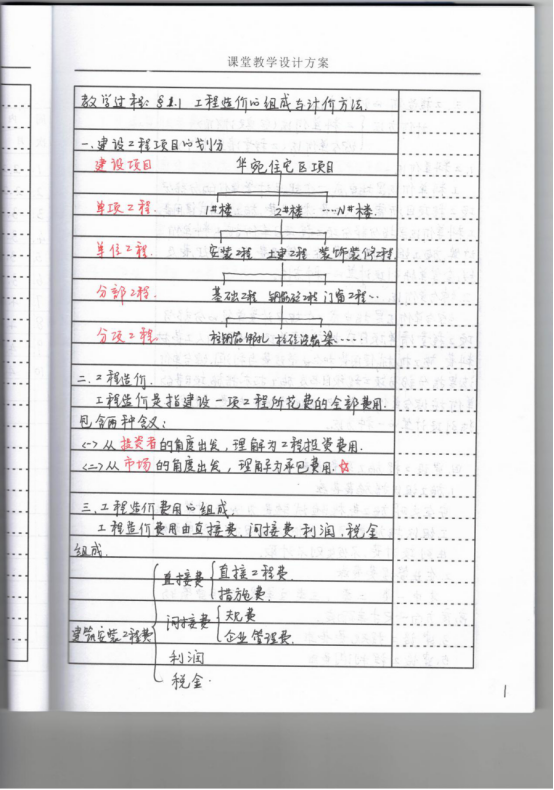 课堂教学设计方案
教学过程: §1.1 工程造价的组成与计价方法.
一.建设工程项目的划分
建设项目 华宛住宅区项目
单项工程. 1#楼 2#楼 ……N#楼.
单位工程. 安装工程 土建工程 装饰装修工程
分部工程. 基础工程 钢筋砼工程 门窗工程…
分项工程. 梁……
二.工程造价.
工程造价是指建设一项工程所花费的全部费用.
包含两种含义:
<一>从投资者的角度出发,理解为工程投资费用.
<二>从市场的角度出发,理解为承包费用.☆
三.工程造价费用的组成.
工程造价费用由直接费.间接费.利润.税金
组成.
直接费 直接工程费.
措施费.
间接费 规费
建筑安装工程费 企业管理费.
利润
税金.
1